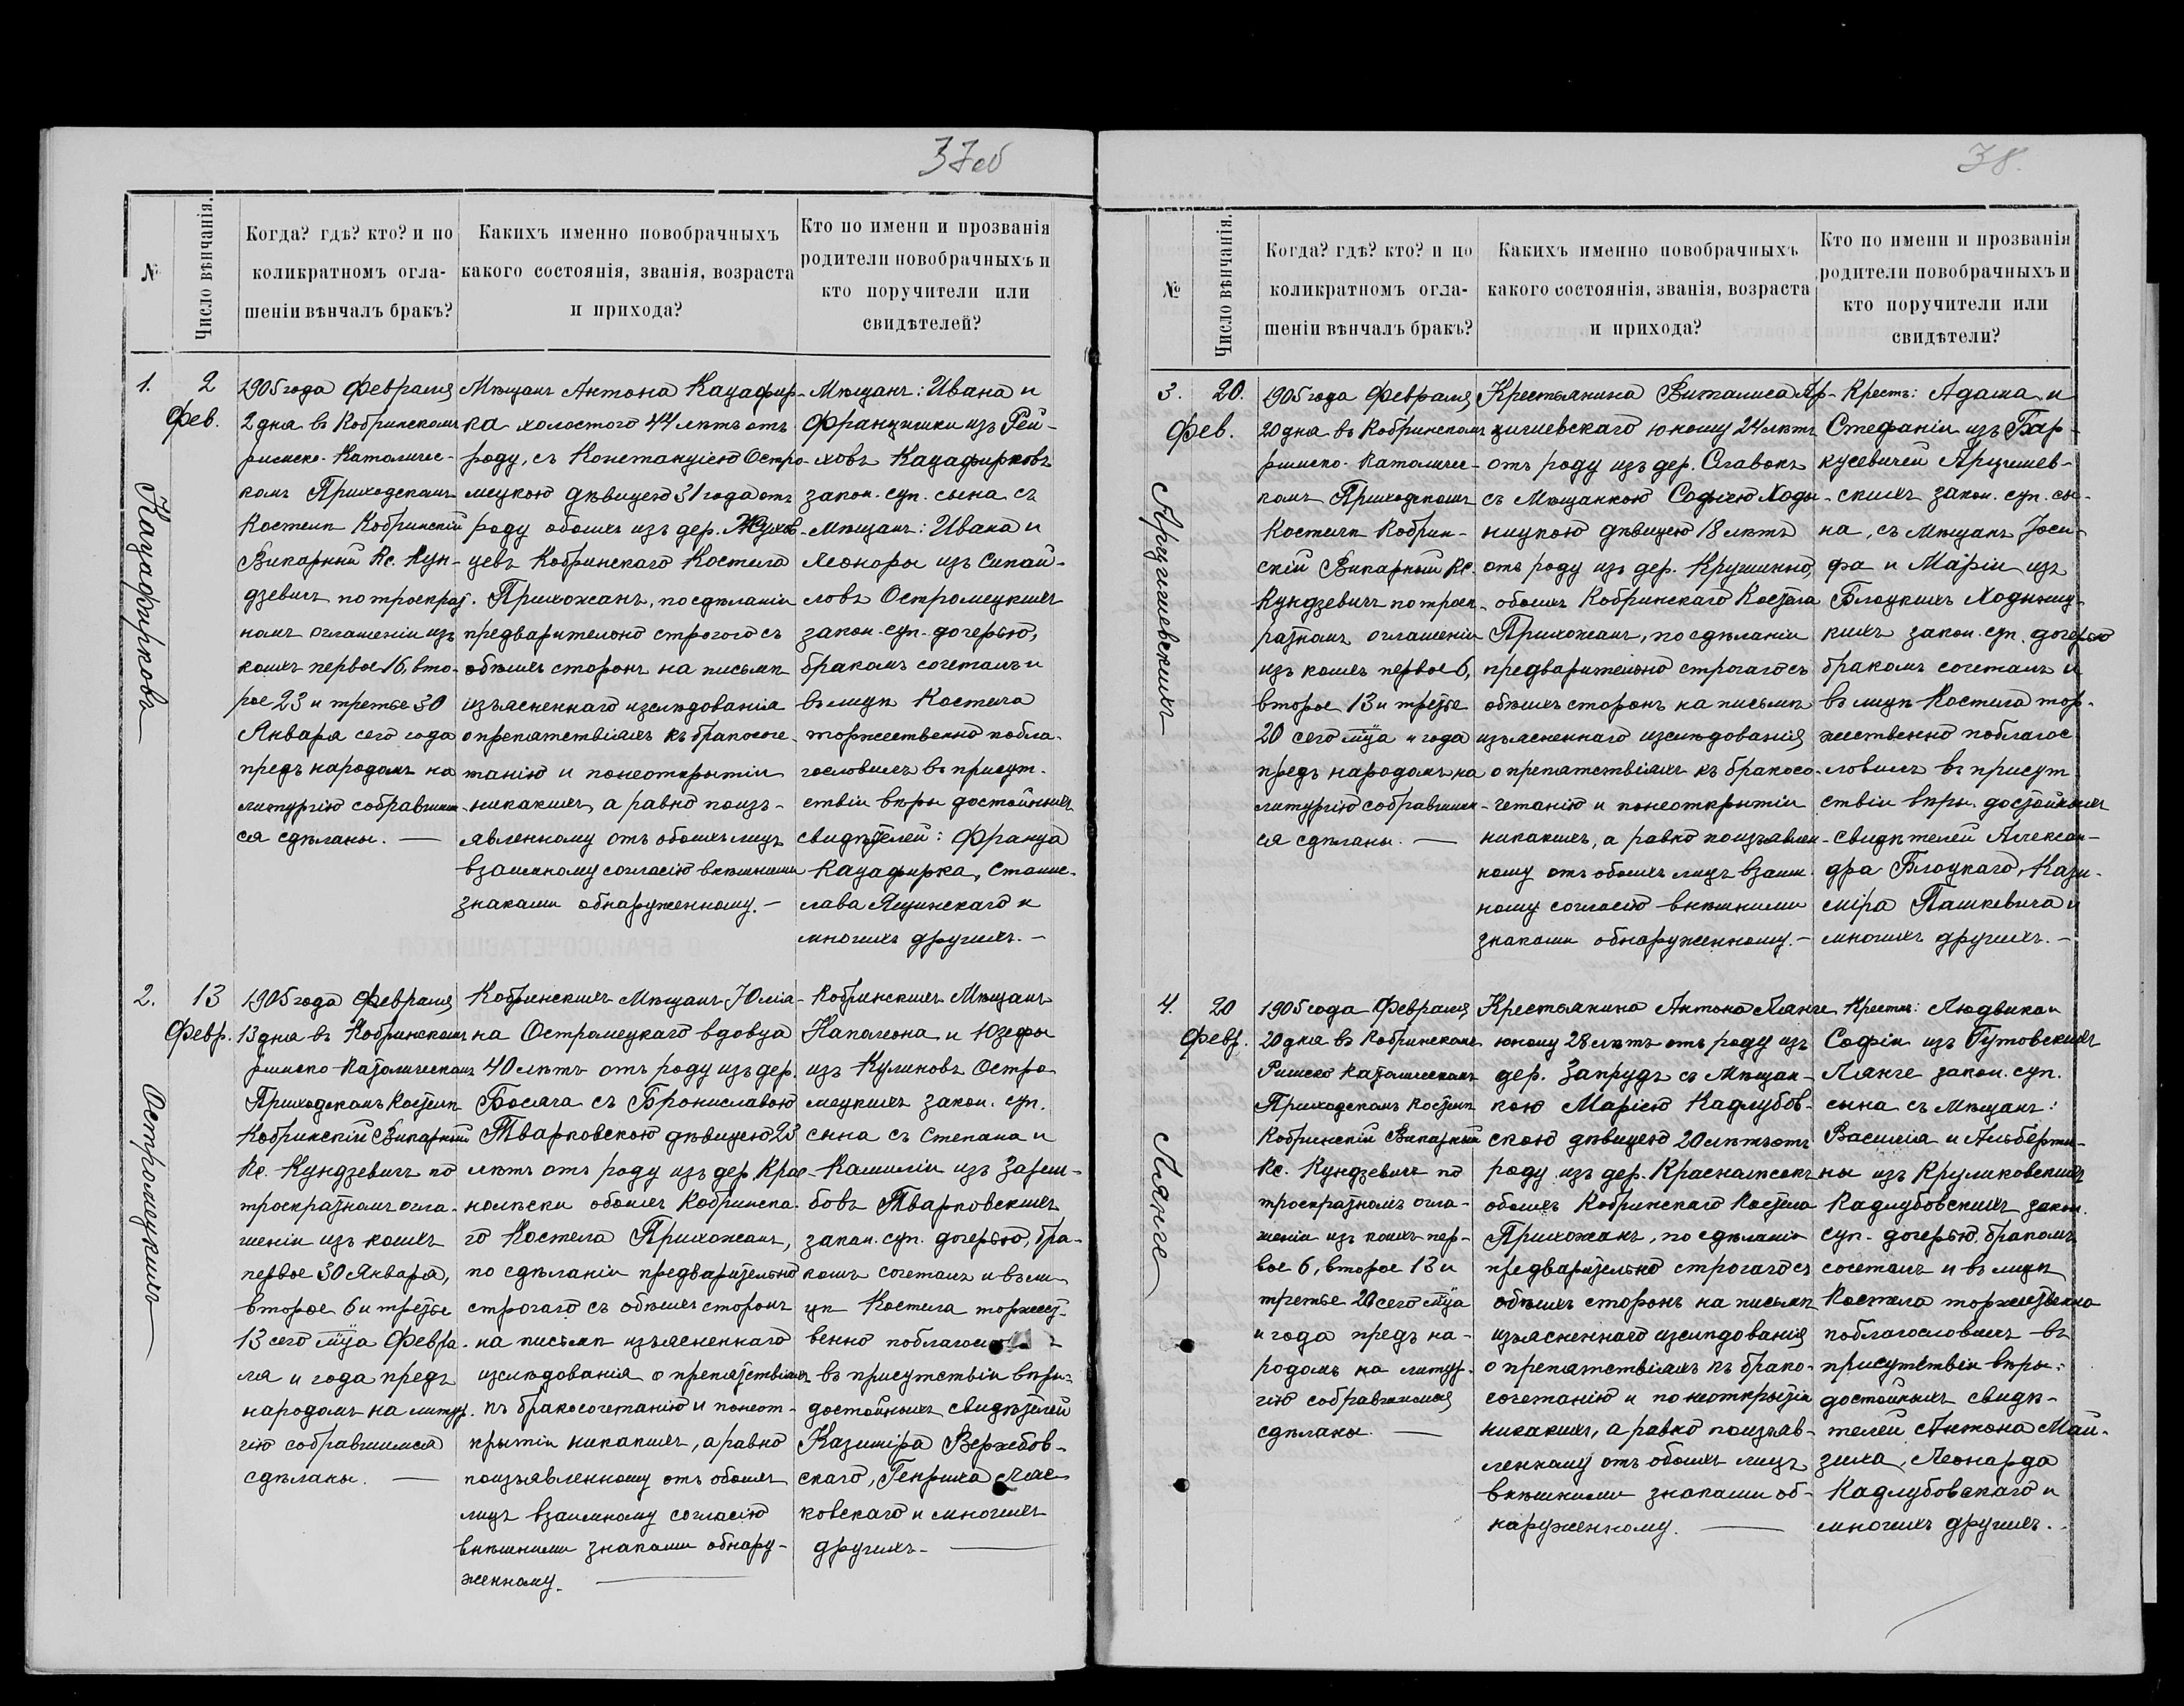 37об
№
Число вѣнчанія.
Когда? гдѣ? кто? и по
коликратномъ огла-
шеніи вѣнчалъ бракъ?
Какихъ именно новобрачныхъ
какого состоянія, званія, возраста
и прихода?
Кто по имени и прозванія
родители новобрачныхъ и
кто поручители или
свидѣтелей?
1.
2
Фев.
Кацафирковъ
1905 года Февраля
2 дня въ Кобринскомъ
римско-Католичес-
комъ Приходскомъ
Костелѣ Кобринскій
Викарный Кс. Кун-
дзевичъ по троекрат-
номъ оглашеніи изъ
коихъ первое 16, вто-
рое 23 и третье 30
Января сего года
предъ народомъ на
литургію собравшим-
ся сдѣланы. —
Мѣщанъ Антона Кацафир-
ка холостого 44 лѣтъ отъ
роду, съ Констанціею Остро-
мецкою дѣвицею 31 года отъ
роду обоихъ изъ дер. Жухов-
цевъ Кобринскаго Костела
Прихожанъ, по сдѣланіи
предварительно строгого съ
обѣихъ сторонъ на письмѣ
изъясненнаго изслѣдованія
о препятствіяхъ къ бракосоче-
танію и по неоткрытіи
никакихъ, а равно по изъ-
явленному отъ обоихъ лицъ
взаимному согласію внѣшними
знаками обнаруженному. —
Мѣщанъ: Ивана и
Францишки изъ Рей-
ховъ Кацафирковъ
закон. суп. сына съ
Мѣщанъ: Ивана и
Леоноры изъ Сипай-
ловъ Остромецкихъ
закон. суп. дочерью,
бракомъ сочеталъ и
въ лицѣ Костела
торжественно побла-
гословилъ въ присут-
ствіи вѣры достойныхъ
свидѣтелей: Франца
Кацафирка, Станис-
лава Ящинскаго и
многихъ другихъ. —
2.
13
Февр.
Остромецкихъ
1905 года Февраля
13 дня въ Кобринскомъ
римско-Католическомъ
Приходскомъ Костелѣ
Кобринскій Викарный
Кс. Кундзевичъ по
троекратномъ огла-
шеніи изъ коихъ
первое 30 Января,
второе 6 и третье
13 сего м-ца Февра-
ля и года предъ
народомъ на литур-
гію собравшимся
сдѣланы. —
Кобринскихъ Мѣщанъ Юліа-
на Остромецкаго вдовца
40 лѣтъ отъ роду изъ дер.
Босяча съ Брониславою
Тварковскою дѣвицею 23
лѣтъ отъ роду изъ дер. Крас-
нолѣски обоихъ Кобринска-
го Костела Прихожанъ,
по сдѣланіи предварительно
строгаго съ обѣихъ сторонъ
на письмѣ изъясненнаго
изслѣдованія о препятствіяхъ
къ бракосочетанію и по неот-
крытіи никакихъ, а равно
по изъявленному отъ обоихъ
лицъ взаимному согласію
внѣшними знаками обнару-
женному. —
Кобринскихъ Мѣщанъ
Наполеона и Юзефы
изъ Куликовъ Остро-
мецкихъ закон. суп.
сына съ Степана и
Камиліи изъ Зарем-
бовъ Тварковскихъ
закон. суп. дочерью, бра-
комъ сочеталъ и въ ли-
цѣ Костела торжест-
венно поблагосл
въ присутствіи вѣры-
достойныхъ свидѣтелей
Казиміра Вержбов-
скаго, Генриха
ковскаго и многихъ
другихъ. —
38.
№
Число вѣнчанія.
Когда? гдѣ? кто? и по
коликратномъ огла-
шеніи вѣнчалъ бракъ?
Какихъ именно новобрачныхъ
какого состоянія, званія, возраста
и прихода?
Кто по имени и прозванія
родители новобрачныхъ и
кто поручители или
свидѣтели?
3.
20.
Фев.
Арцишевскихъ
1905 года Февраля
20 дня въ Кобринскомъ
римско-Католичес-
комъ Приходскомъ
Костелѣ Кобрин-
скій Викарный Кс.
Кундзевичъ по троек-
ратномъ оглашеніи
изъ коихъ первое 6,
второе 13 и третье
20 сего м-ца и года
предъ народомъ на
литургію собравшим-
ся сдѣланы. —
Крестьянина Виталиса Ар-
цишевскаго юношу 24 лѣтъ
отъ роду изъ дер. Славокъ
съ Мѣщанкою Софіею Ходы-
ницкою дѣвицею 18 лѣтъ
отъ роду изъ дер. Крушино,
обоихъ Кобринскаго Костела
Прихожанъ, по сдѣланіи
предварительно строгаго съ
обѣихъ сторонъ на письмѣ
изъясненнаго изслѣдованія
о препятствіяхъ къ бракосо-
четанію и по неоткрытіи
никакихъ, а равно по изъявлен-
ному отъ обоихъ лицъ взаим-
ному согласію внѣшними
знаками обнаруженному. —
Крест: Адама и
Стефаніи изъ Бар-
кусевичей Арцишев-
скихъ закон. суп. сы-
на, съ Мѣщанъ Іоси-
фа и Маріи изъ
Блоцкихъ Ходыниц-
кихъ закон. суп. дочерью
бракомъ сочеталъ и
въ лицѣ Костела тор-
жественно поблагос-
ловилъ въ присут
ствіи вѣры достойныхъ
свидѣтелей Алексан-
дра Блоцкаго, Кази-
міра Пашкевича и
многихъ другихъ. —
4.
20
Февр.
Лянге
1905 года Февраля
20 дня въ Кобринскомъ
Римско Католическомъ
Приходскомъ Костелѣ
Кобринскій Викарный
Кс. Кундзевичъ по
троекратномъ огла-
шеніи изъ коихъ пер-
вое 6, второе 13 и
третье 20 сего м-ца
и года предъ на-
родомъ на литур-
гію собравшимся
сдѣланы. —
Крестьянина Антона Лянге
юношу 28 лѣтъ отъ роду изъ
дер. Запрудъ съ Мѣщан-
кою Маріею Кадлубов-
скою дѣвицею 20 лѣтъ отъ
роду изъ дер. Краснолѣсокъ
обоихъ Кобринскаго Костела
Прихожанъ, по сдѣланіи
предварительно строгаго съ
обѣихъ сторонъ на письмѣ
изъясненнаго изслѣдованія
о препятствіяхъ къ брако-
сочетанію и по неоткрытіи
никакихъ, а равно по изъяв-
ленному отъ обоихъ лицъ
внѣшними знаками об-
наруженному. —
Крест: Людвика и
Софіи изъ Гутовскихъ
Лянге закон. суп.
сына съ Мѣщанъ:
Василія и Альберти-
ны изъ Круликовскихъ
Кадлубовскихъ закон.
суп. дочерью, бракомъ
сочеталъ и въ лицѣ
Костела торжественно
поблагословилъ въ
присутствіи вѣры-
достойныхъ свидѣ-
телей Антона Май-
зиха, Леонарда
Кадлубовскаго и
многихъ другихъ. -